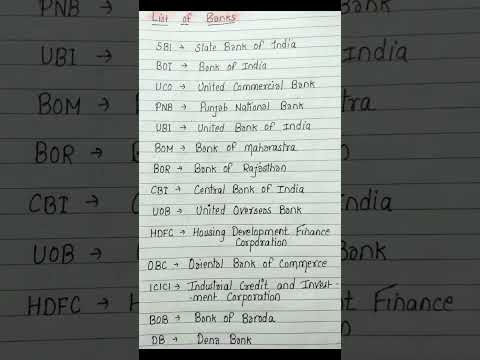 List of Banks
SBI → State Bank of India
BOI → Bank of India
UCO → United Commercial Bank
PNB → Punjab National Bank
UBI → United Bank of India
BOM → Bank of Maharastra
BOR → Bank of Rajasthan
CBI → Central Bank of India
UOB → United Overseas Bank
HDFC → Housing Development Finance
Corporation
OBC → Oriental Bank of Commerce
ICICI → Industrial Credit and Invest-
-ment Corporation
BOB → Bank of Baroda
DB → Dena Bank
PNB →
UBI →
BOM →
BOR →
CBI →
UOB →
HDFC →
Bank
India
India
Bank
Finance